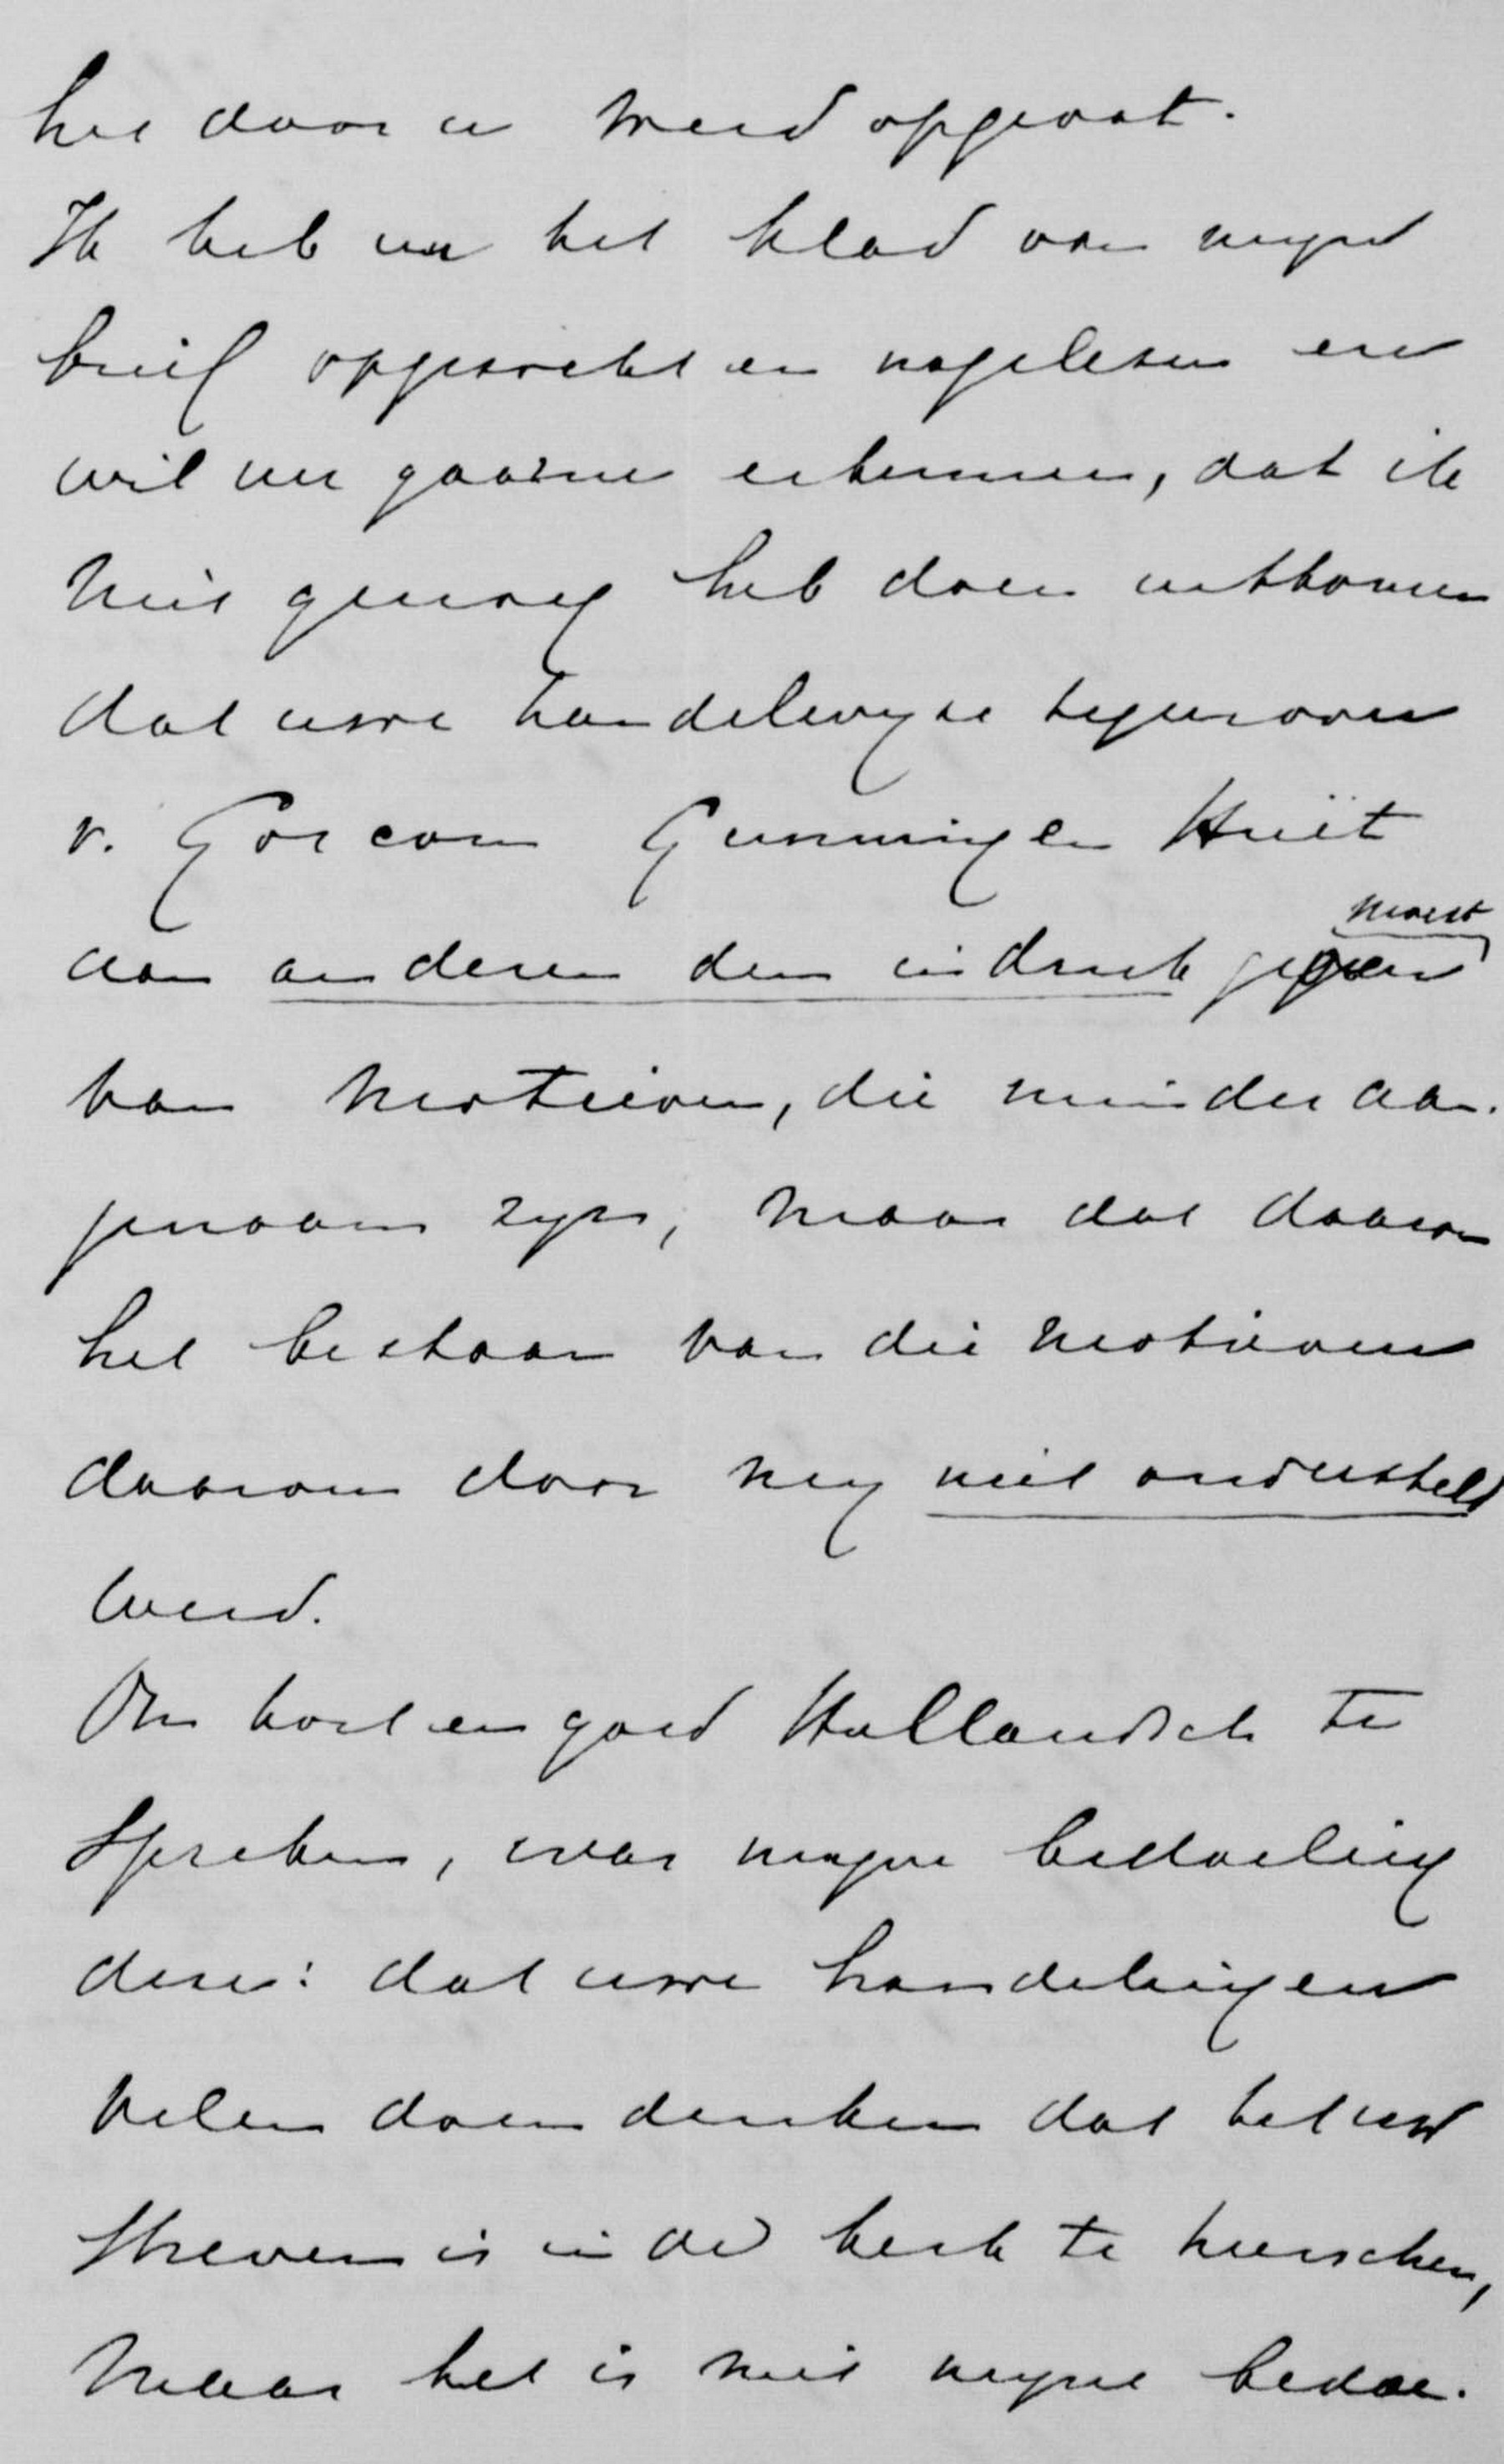 het door u werd opgevat.
Ik heb nu het klad van mijn
brief opgezocht en nagelezen en
wil nu gaarne erkennen, dat ik
niet genoeg heb doen uitkomen
dat uwe handelwijze tegenover
v. Gorcom Gunning en Huët
moest
aan anderen den indruk geven
van motieven, die minder aan-
genaam zijn, maar dat daarom
het bestaan van die motieven
daarom door mij niet ondersteld
werd.
Om kort en goed Hollandsch te
spreken, was mijne bedoeling
deze: dat uwe handelingen
velen doen denken dat het uw
streven is in de kerk te heerschen,
maar het is niet mijne bedoe-